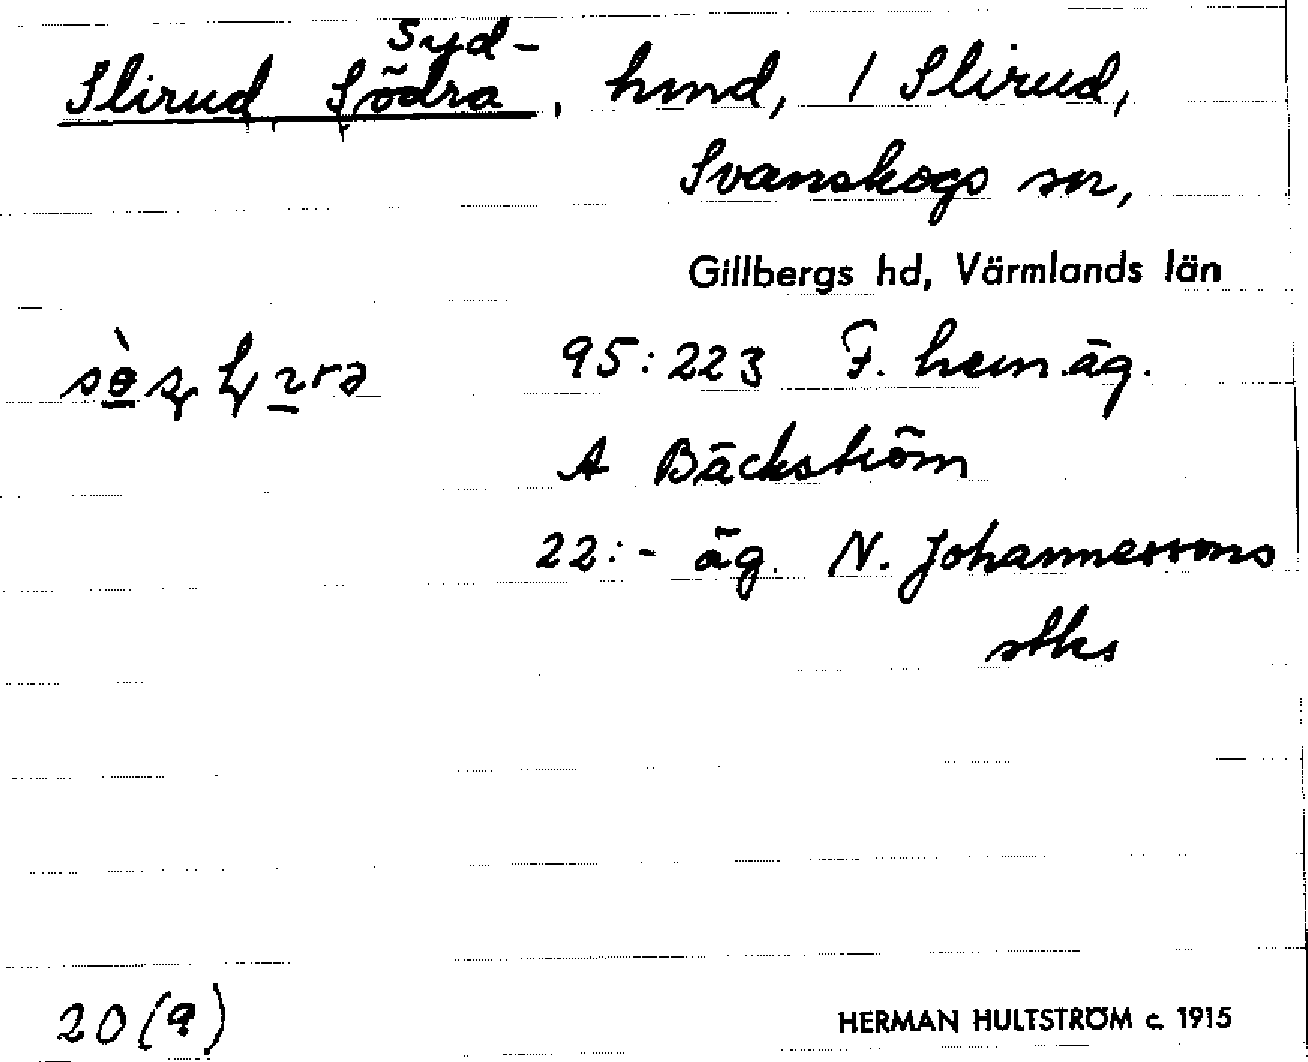 Syd-
Slirud, Södra, hmd, 1 Slirud,
Svanskogs sn,
Gillbergs hd, Värmlands län
95:223 F. hem.äg.
A Bäckström
22:- äg. N. Johannessons
stks
20(9)
HERMAN HULTSTRÖM c. 1915